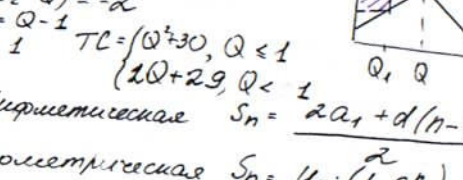 = -2
= Q - 1
1
TC = { Q² + 30, Q ≤ 1
{ 2Q + 29, Q < 1
Q₁ Q
ифметическая Sₙ = 2a₁ + d(n-
2
ометрическая Sₙ =